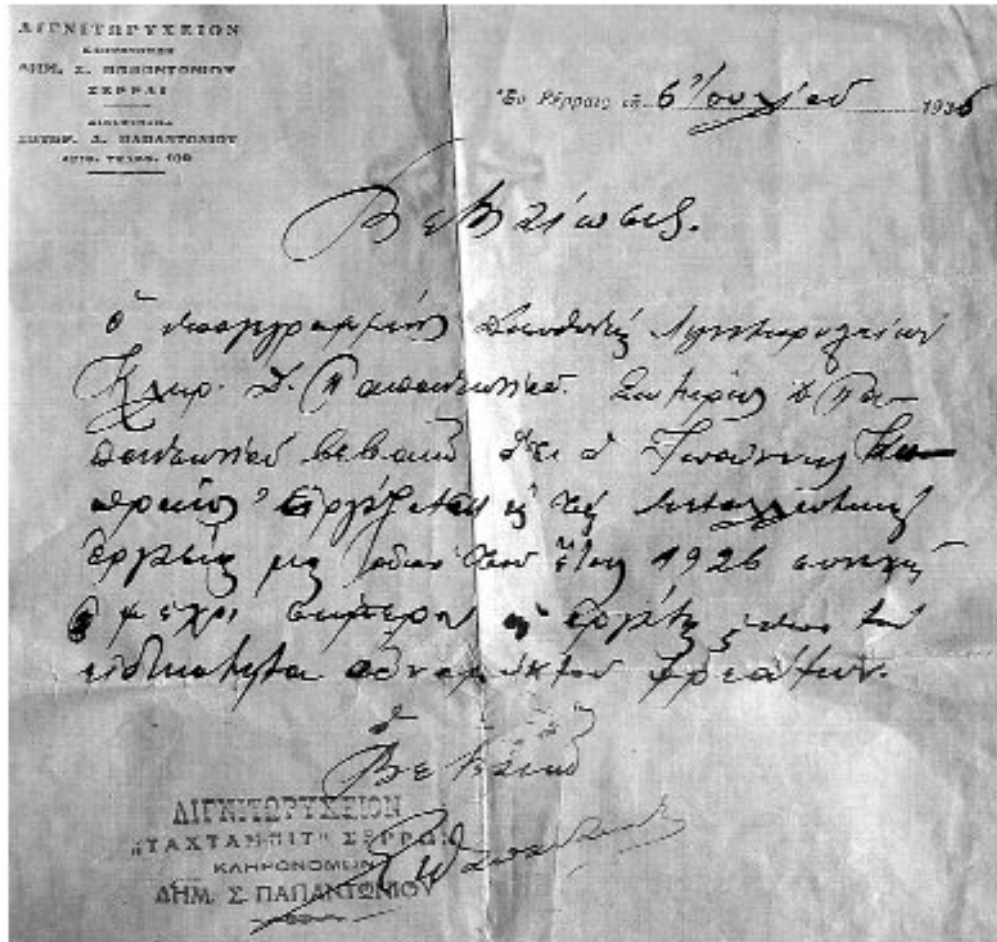 ΛΙΓΝΙΤΩΡΥΧΕΙΟΝ
ΔΗΜ. Σ. ΠΑΠΑΝΤΩΝΙΟΥ
ΣΕΡΡΑΙ
ΣΩΤΗΡ. Δ. ΠΑΠΑΝΤΩΝΙΟΥ
Ἐν Σέρραις τῇ 6 Ἰουλίου 1936
Βεβαίωσις.
Ὁ ὑπογεγραμμένος Διευθυντής Λιγνιτωρυχείων
Κληρ. Δ. Παπαντωνίου Σωτήριος Δ Πα-
παντωνίου βεβαιῶ ὅτι ὁ Ἰωάννης
ἐργάζεται εἰς τάς
ἐργασίας μας ἀπό τοῦ ἔτους 1926 συνεχῶς
μέχρι σήμερον ὡς ἐργάτης
εἰδικότητα φρεάτων.
Ὁ
Βεβαιῶν
ΛΙΓΝΙΤΩΡΥΧΕΙΟΝ
"ΤΑΧΤΑΜΠΙΤ" ΣΕΡΡΩΝ
ΚΛΗΡΟΝΟΜΩΝ
ΔΗΜ. Σ. ΠΑΠΑΝΤΩΝΙΟΥ